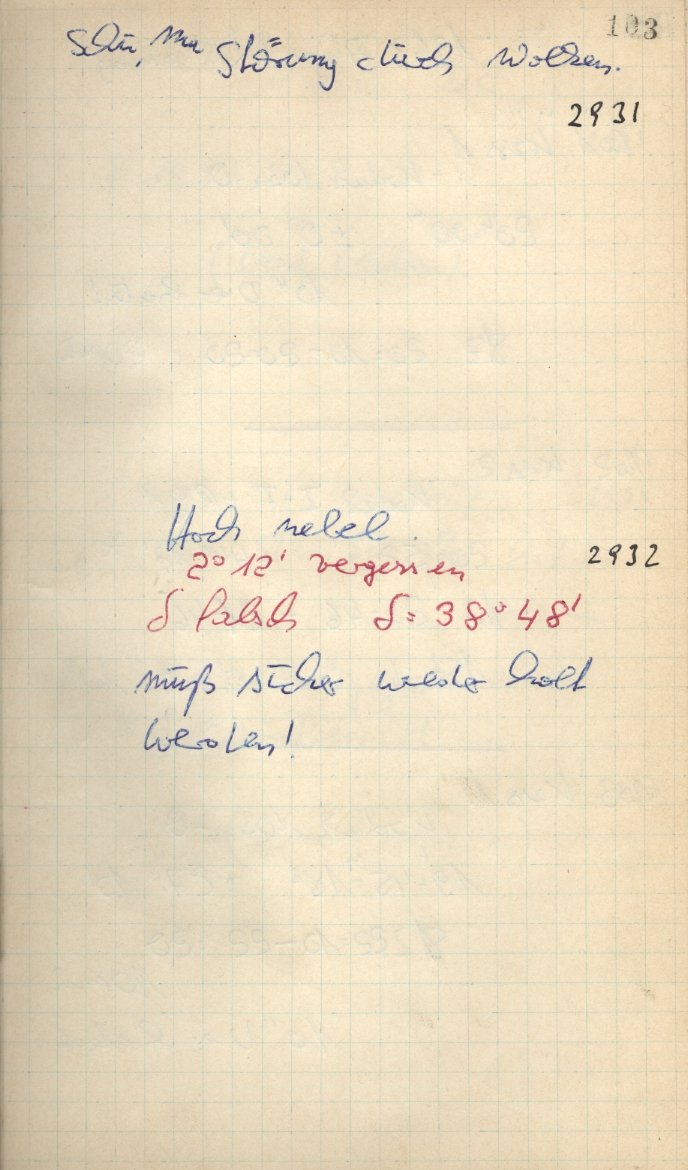 103
Störung durch Wolken.
2931
Hochnebel.
2°12' vergessen
2932
δ falsch δ = 38°48'
muß sicher wiederholt
werden!